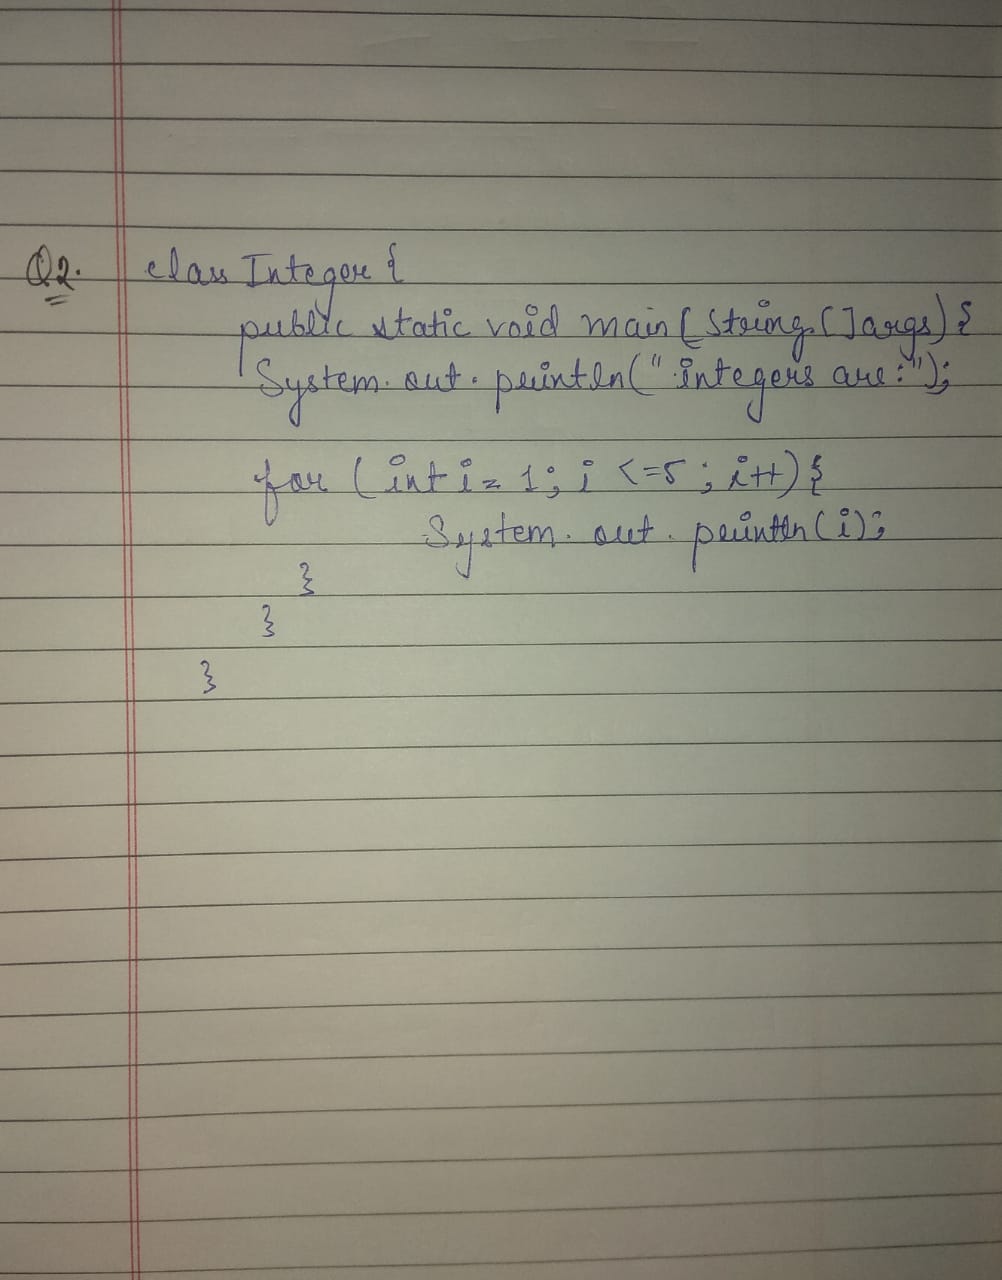 Q2. class Integer {
public static void main (String [] args) {
System.out.println(" integers are:");
for (int i = 1; i <=5; i++) {
System.out.println(i);
}
}
}